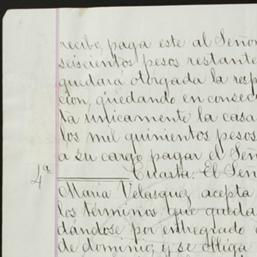 recibo, paga este al Señor
seiscientos pesos restante
quedará otorgada la resp
cion, quedando en consec
ta unicamente la casa
los mil quinientos pesos
a su cargo pagar el Señ
4ª Cuarta: El Señ
María Velasquez acepta
los términos que queda
dándose por entregado
de dominio, y se obliga